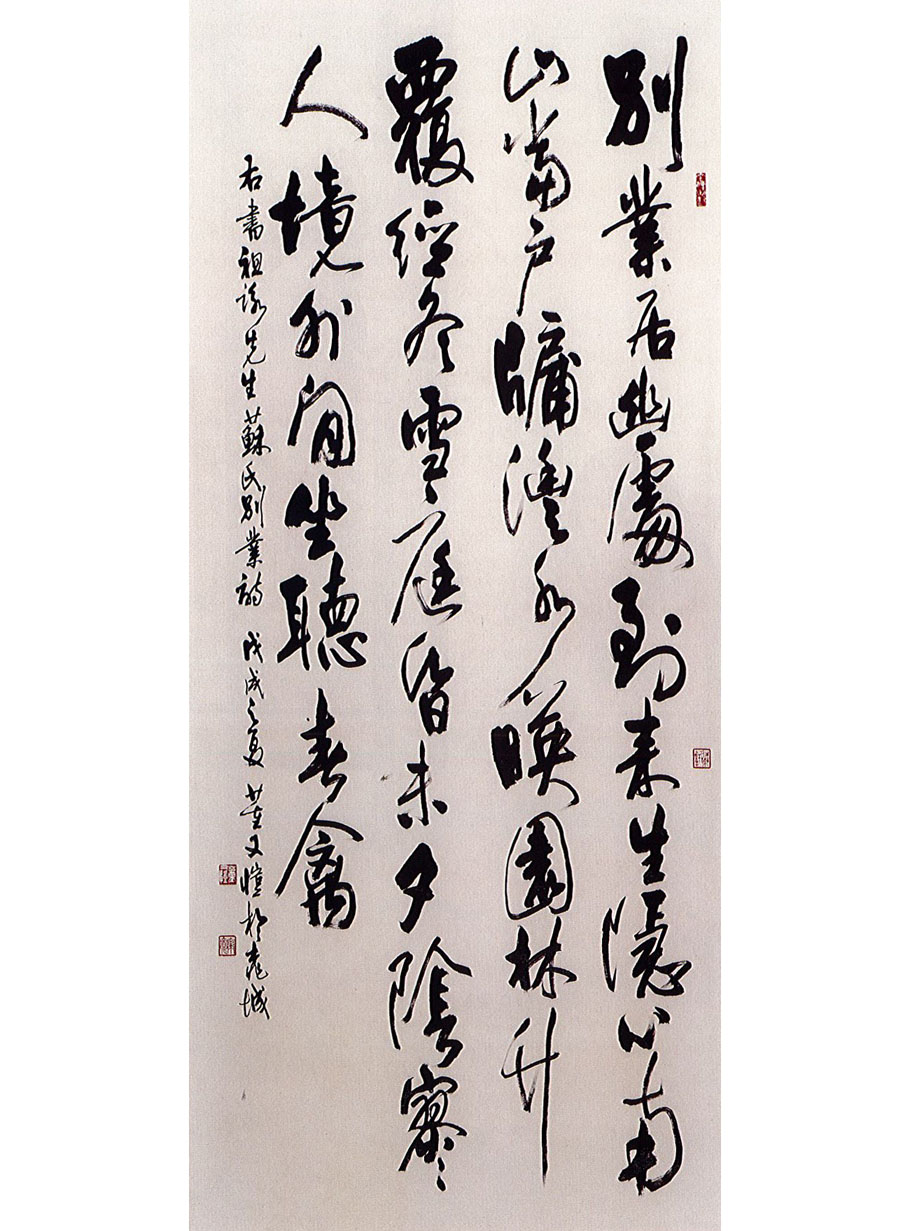 別業居幽處到来生隱心南
山當户牖灃水暎園林竹
覆經冬雪庭昏未夕陰寥寥
人境外閒坐聽春禽
右書祖詠先生蘇氏別業詩 戊戌之夏 董文愷於龍城